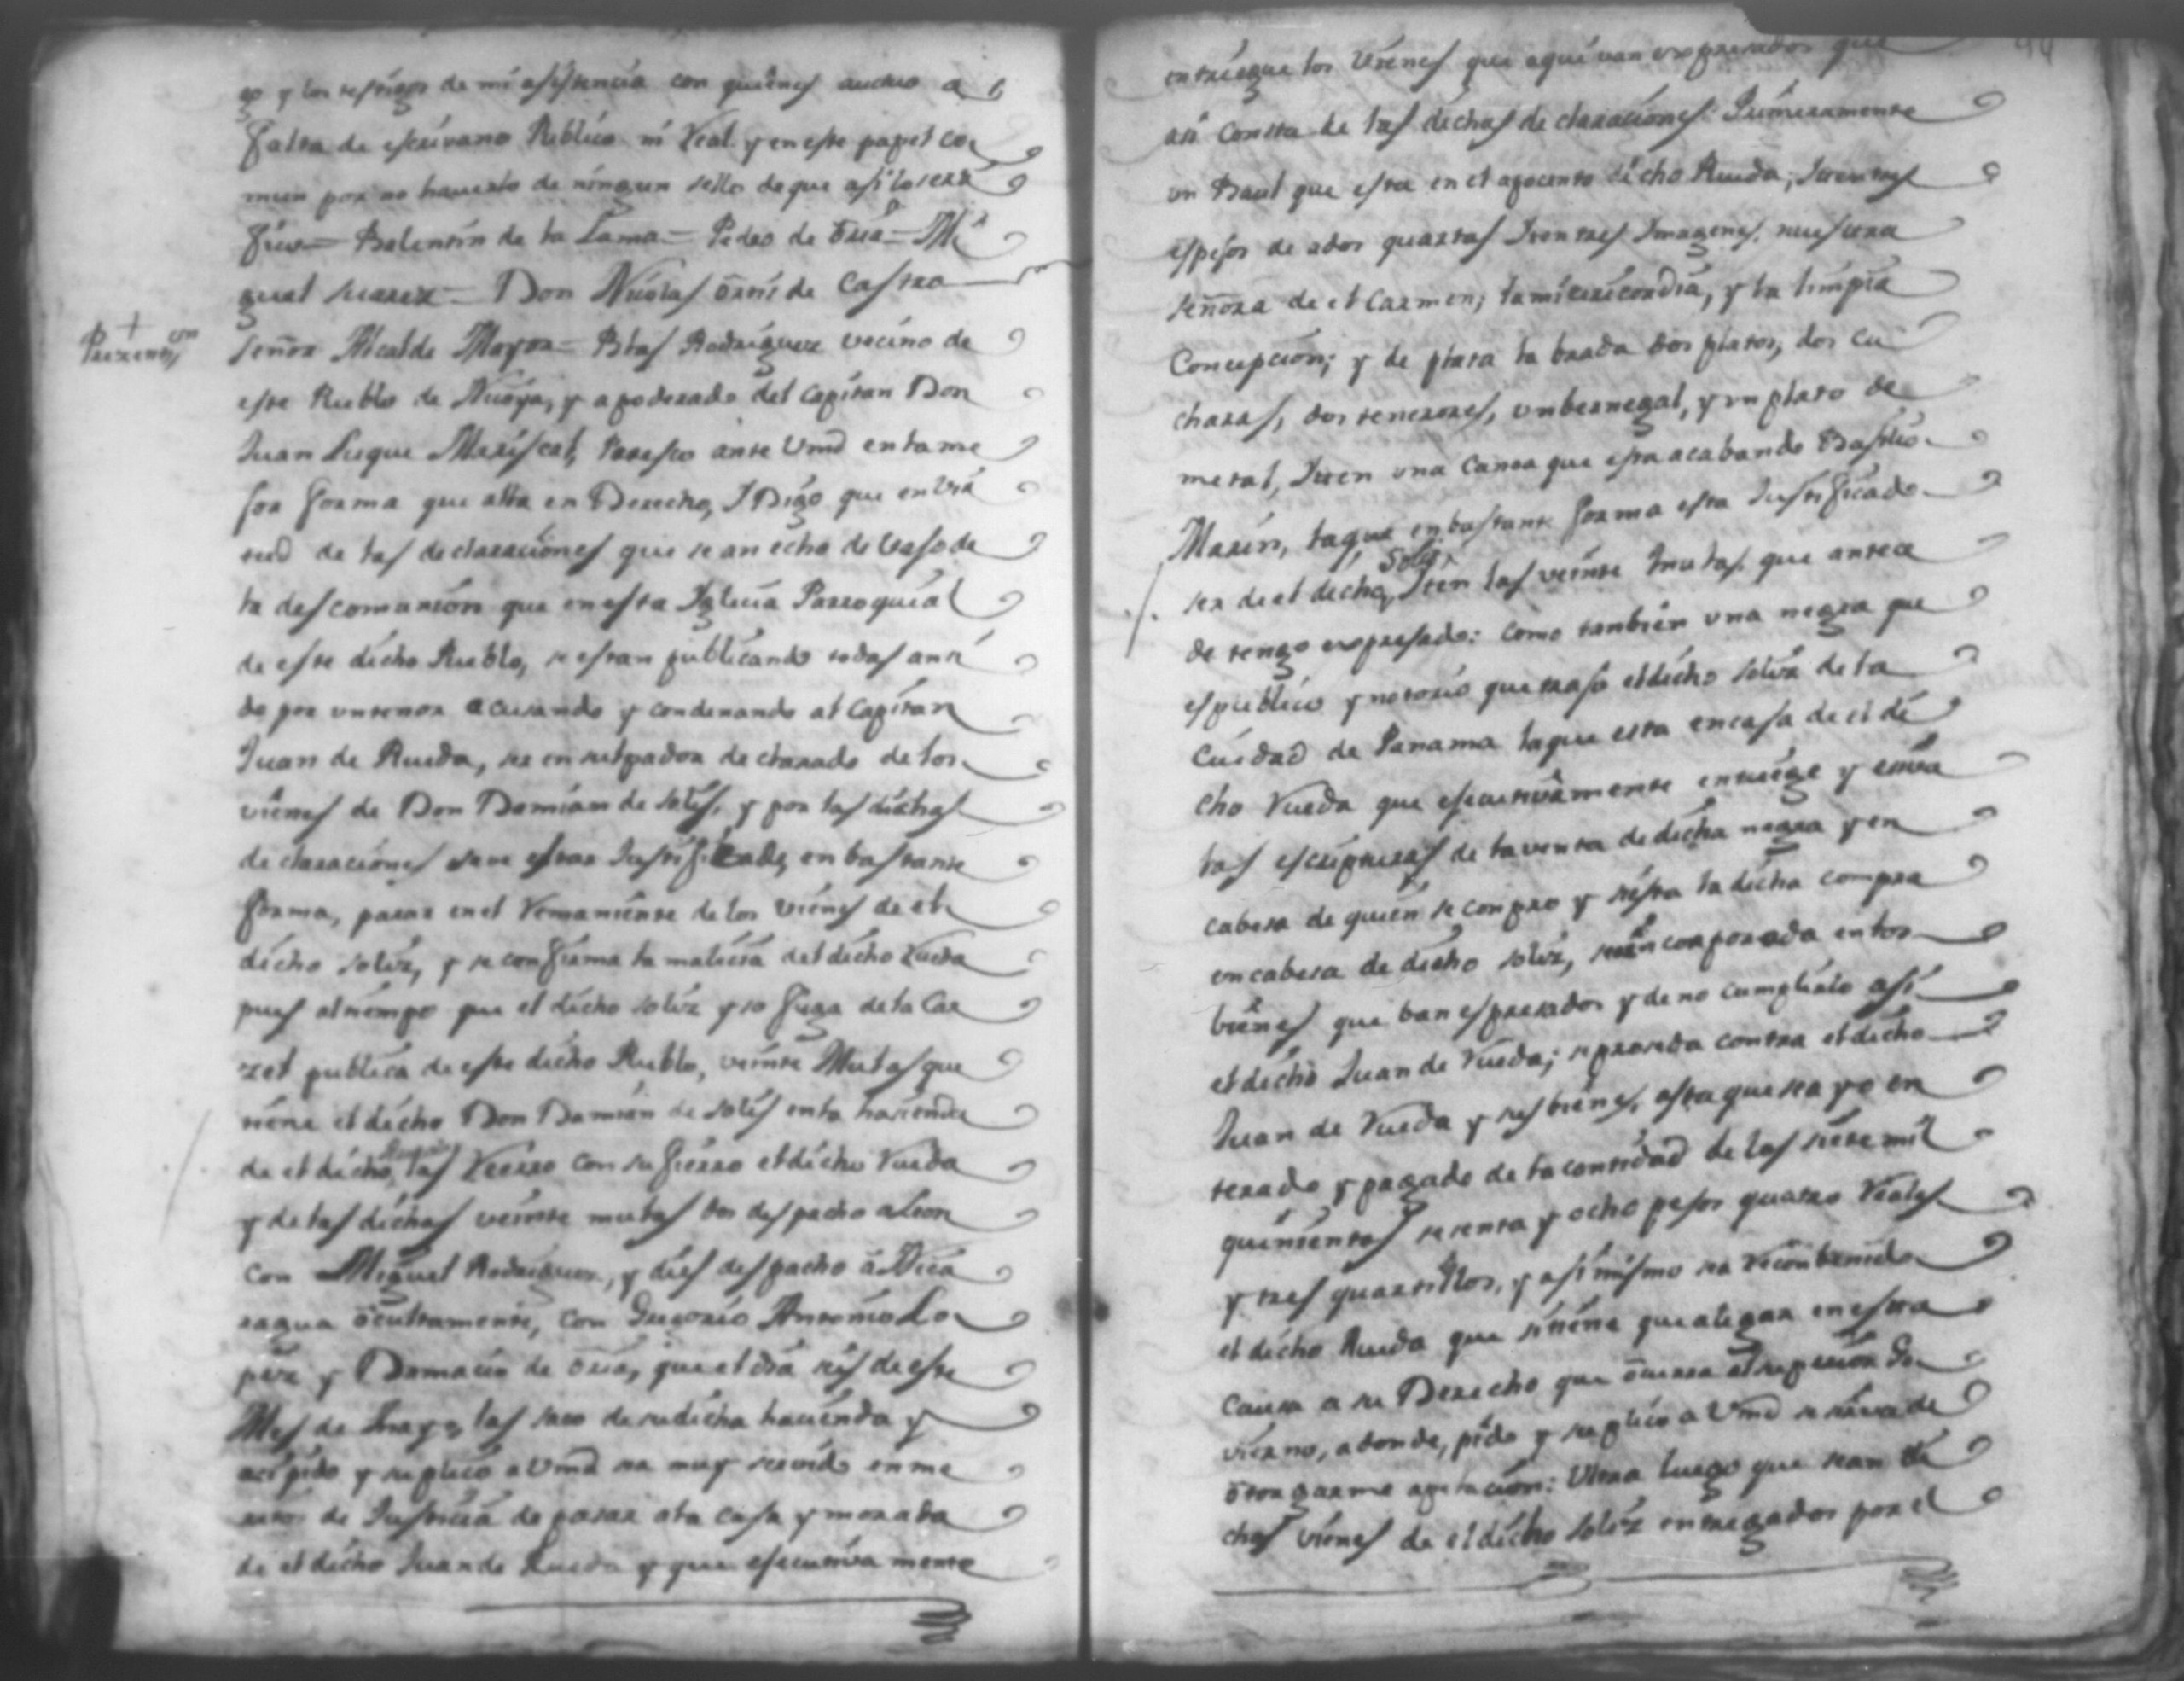 go y los testigos de mi asistencia con quienes autuo a
falta de escrivano Publico ni Real y en este papel co
mun por no haverlo de ningun sello de que asi lo serti
fico = Balentin de la Lama = Pedro de Oria = Mi
guel suarez = Don Nicolas Ortis de Castro
+
Petizion
señor Alcalde Mayor = Blas Rodriguez vecino de
este Pueblo de Nicoya, y apoderado del Capitan Don
Juan Luque Mariscal, Paresco ante Vmd en la me
for forma que alla en Derecho, I Digo que en vir
tud de las declaraciones que se an echo de baso de
la descomunion que en esta Iglecia Parroquial
de este dicho Pueblo, se estan publicando todas an si
do por un tenor acusando y condenando al Capitan
Juan de Rueda, ser declarado de los
vienes de Don Damian de solis, y por las dichas
declaraciones estar Justificado, en bastante
forma, parar en el Remaniente de los vienes de el
dicho soliz, y se confirma la malicia del dicho Rueda
pues al tiempo que el dicho soliz yso fuga de la Car
zel publica de este dicho Pueblo, veinte Mulas que
tiene el dicho Don Damian de solis en la hacienda
de el dicho las Yerro con su fierro el dicho Rueda
y de las dichas veinte mulas dos despacho a Leon
con Miguel Rodriguez, y dies despacho a Nica
ragua ocultamente, con Gregorio Antonio Lo
pez y Damacio de Oria, que el dia seis de este
Mes de Mayo las saco de su dicha hacienda y
aci pido y suplico a Vmd sea muy servido en me
ritos de Justicia de pasar a la casa y morada
de el dicho Juan de Rueda y que esecutiva mente
94
entriegue los vienes que aqui van expresados que
asi consta de las dichas declaraciones: Primeramente
un Baul que esta en el aposento dicho Rueda; Iten tres
espejos de a dos quartas Iten tres Imagenes, nuestra
señora de el Carmen; la misericordia, y la limpia
Concepcion; y de plata labrada dos platos, dos cu
charas, dos tenedores, un bernegal, y un plato de
metal, Iten una Canoa que esta acabando Basilio
Marin, la que en bastante forma esta Justificado
soliz
ser de el dicho, Iten las veinte mulas que antece
de tengo expresado: como tanbien una negra que
es publico y notorio que trajo el dicho soliz de la
Ciudad de Panama la que esta en casa de el di
cho Rueda que esecutivamente entriege y exiva
las escripturas de la venta de dicha negra y en
cabesa de quien se compro y si esta la dicha compra
en cabesa de dicho soliz, sea incorporada en los
bienes que ban espresados y de no cumplirlo asi
el dicho Juan de Rueda; se proseda contra el dicho
Juan de Rueda y sus bienes, asta que sea yo en
terado y pagado de la cantidad de las siete mil
quinientos sesenta y ocho pesos quatro Reales
y tres quartillos, y asi mismo sea reconbenido
el dicho Rueda que si tiene que alegar en esta
causa a su Derecho que ocurra al superior Go
vierno, a donde, pido y suplico a Vmd se sirva de
otorgarme apelacion: Otra luego que sean di
chos vienes de el dicho soliz entregados por el